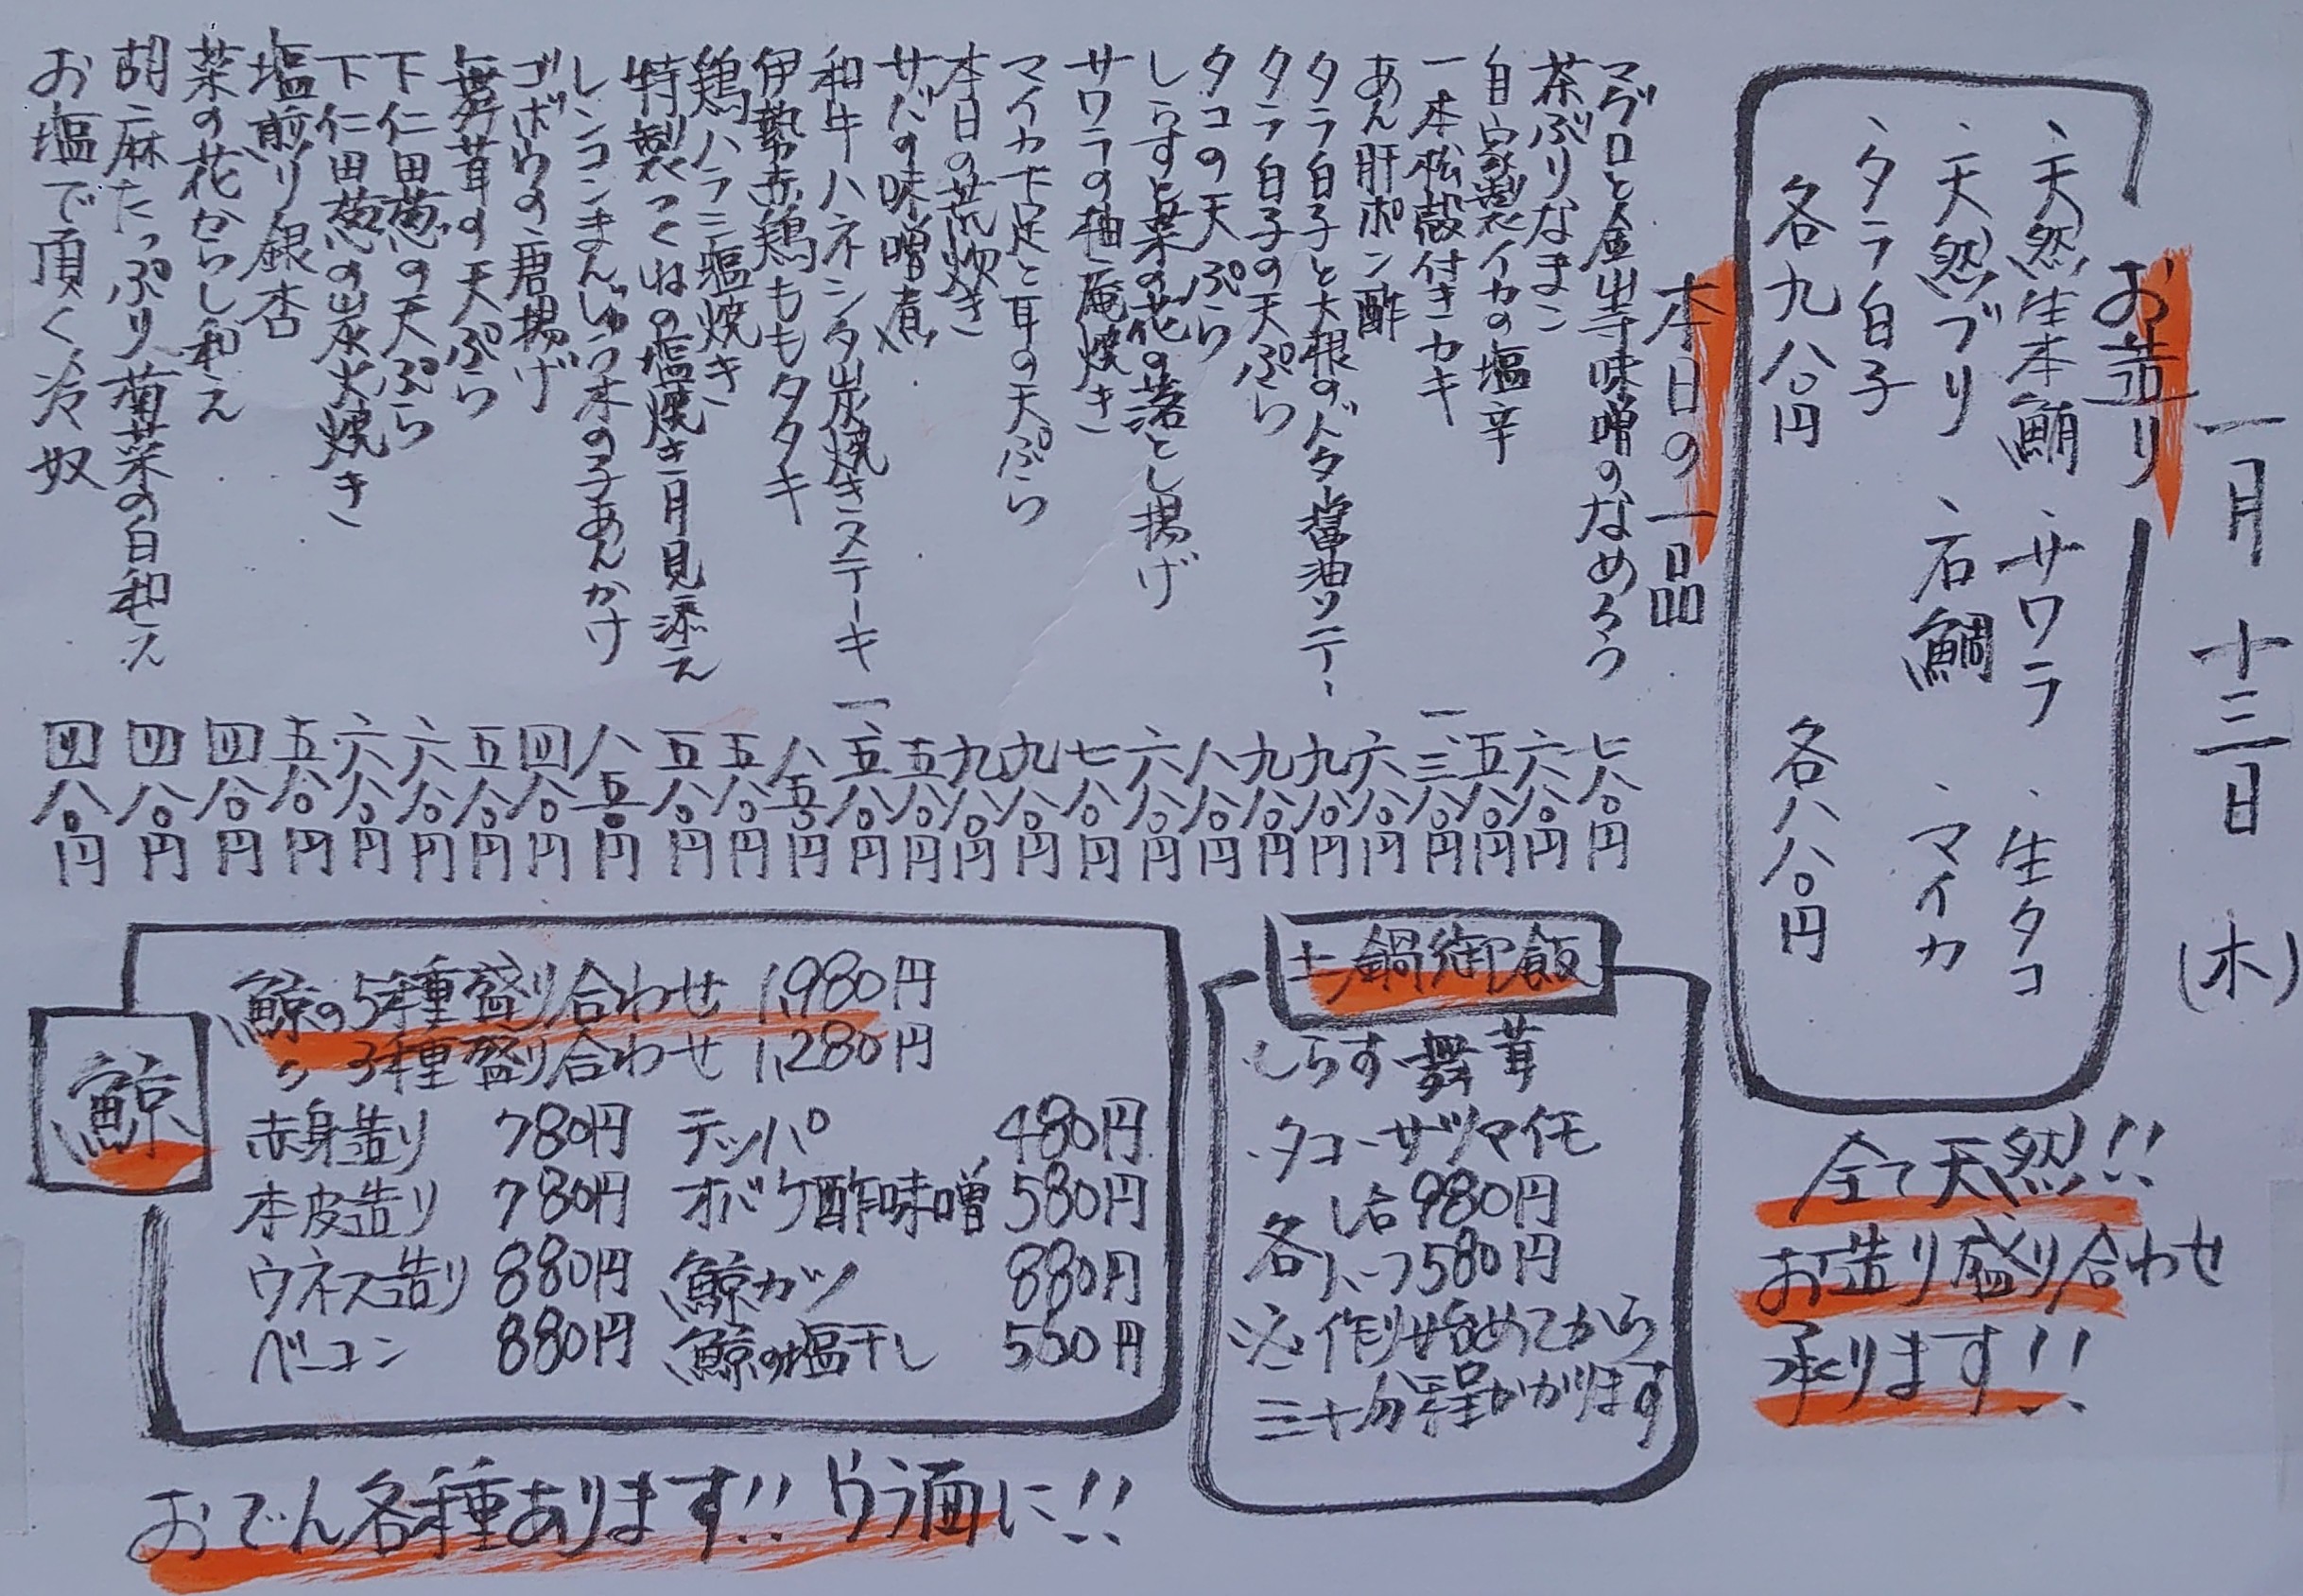 一月十三日(木)
お造り
、天然生本鮪 、サワラ 、生タコ
、天然ブリ 、石鯛 、マイカ
、タラ白子
各九八〇円 各八八〇円
全て天然!!
お造り盛り合わせ
承ります!!
本日の一品
マグロと金山寺味噌のなめろう 七八〇円
茶ぶりなまこ 六八〇円
自家製イカの塩辛 五八〇円
一本松殻付きカキ 一、三八〇円
あん肝ポン酢 六八〇円
タラ白子と大根のバター醤油ソテー 九八〇円
タラ白子の天ぷら 九八〇円
タコの天ぷら 八八〇円
しらすと菜の花の落とし揚げ 六八〇円
サワラの柚庵焼き 七八〇円
マイカ下足と耳の天ぷら 九八〇円
本日の荒炊き 九八〇円
サバの味噌煮 五八〇円
和牛ハネシタ炭焼きステーキ 一、五八〇円
伊勢赤鶏ももタタキ 八五〇円
鶏ハラミ塩焼き 五八〇円
特製つくねの塩焼き 月見添え 五八〇円
レンコンまんじゅう木の子あんかけ 八五〇円
ゴボウの唐揚げ 四八〇円
舞茸の天ぷら 五八〇円
下仁田葱の天ぷら 六八〇円
下仁田葱の炭火焼き 六八〇円
塩煎り銀杏 五八〇円
菜の花からし和え 四八〇円
胡麻たっぷり菊菜の白和え 四八〇円
お塩で頂く冷奴 四八〇円
土鍋御飯
・しらす舞茸
・タコーサツマイモ
各 1合980円
各 ハーフ580円
※作り始めてから
三十分程かかります
鯨
鯨の5種盛り合わせ 1,980円
〃 3種盛り合わせ 1,280円
赤身造り 780円 テッパ 480円
本皮造り 780円 オバケ酢味噌 580円
ウネス造り 880円 鯨カツ 880円
ベーコン 880円 鯨の塩干し 550円
おでん各種あります!! ウラ面に!!